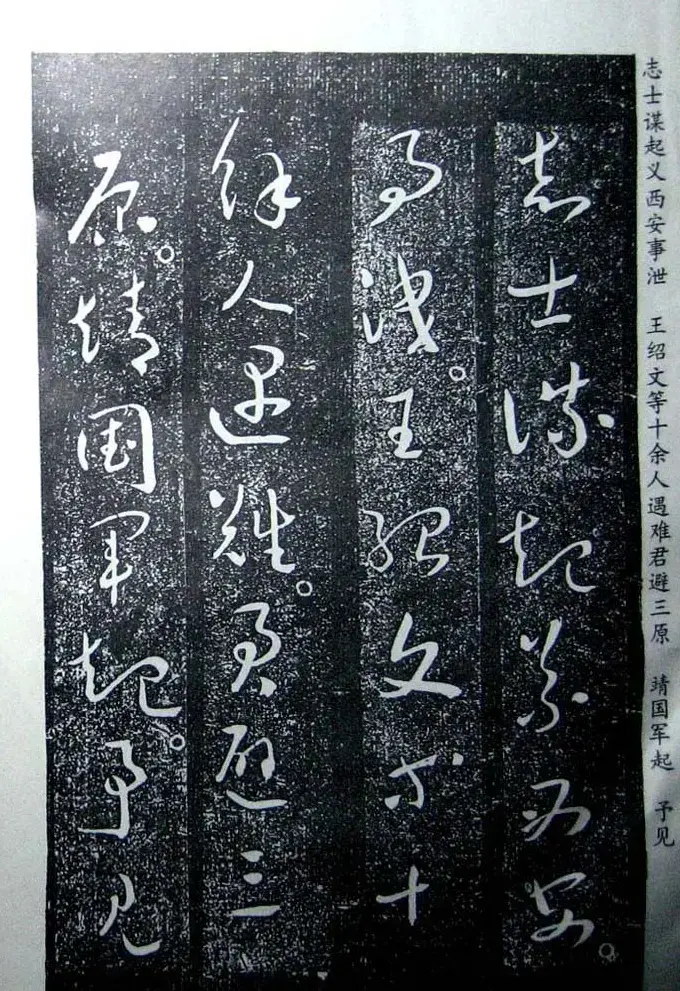 志士谋起义西安事泄　王绍文等十余人遇难君避三原　靖国军起　予见
志士謀起義西安。
事洩。王紹文等十
餘人遇難。君避三
原。靖國軍起。予見